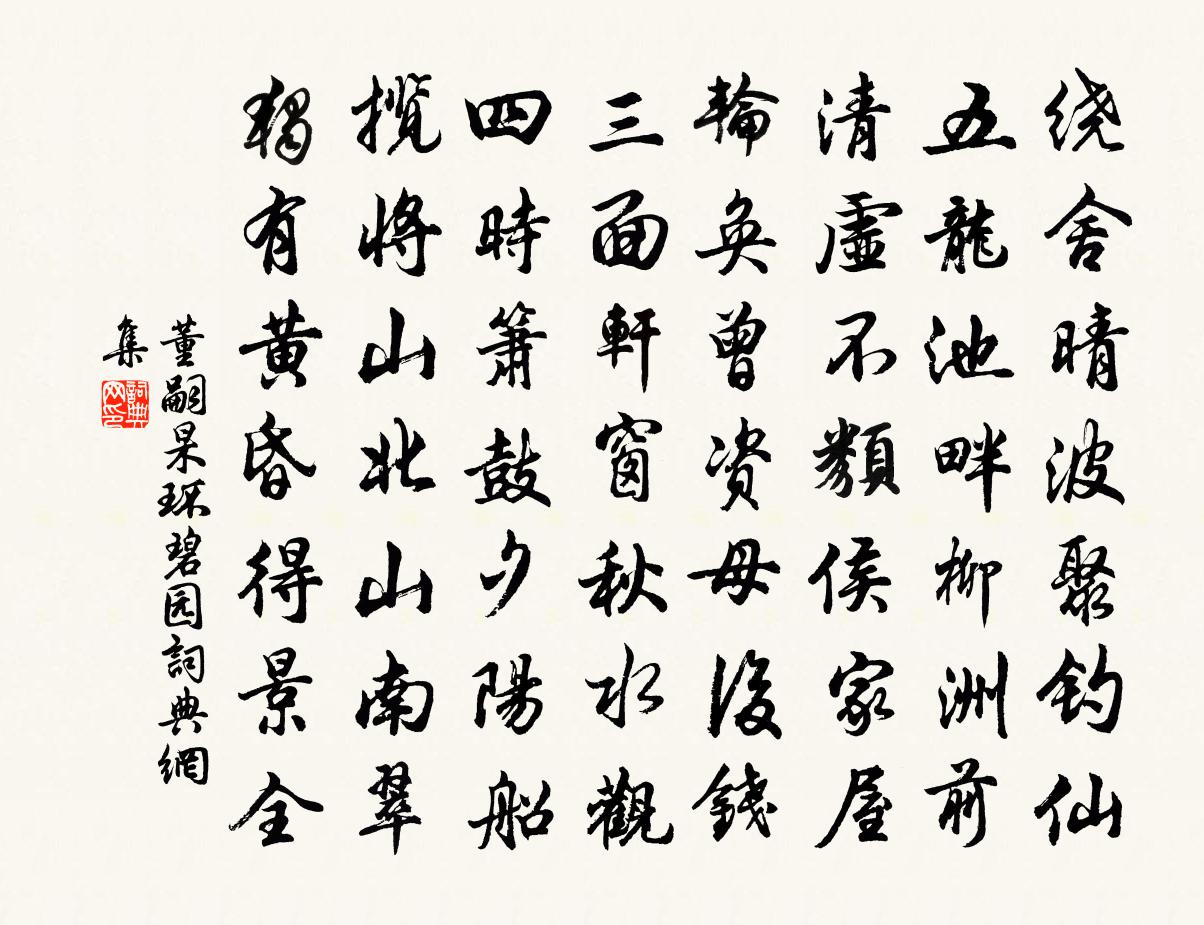 绕舍晴波聚钓仙
五龍池畔柳洲前
清虛不類侯家屋
輪奐曾资母後錢
三面軒窗秋水觀
四時簫鼓夕陽船
揽將山北山南翠
獨有黄昏得景全
董嗣杲環碧园詞典網
集
詞典网印